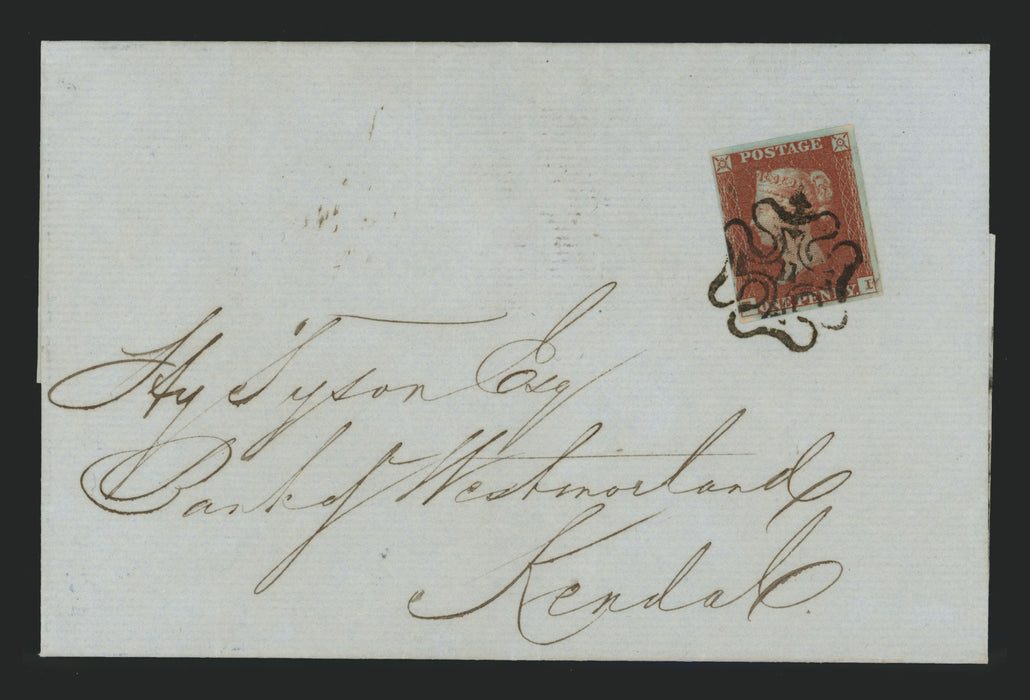 POSTAGE
ONE PENNY.
I
Hy Tyson Esq
Bank of Westmorland
Kendal.